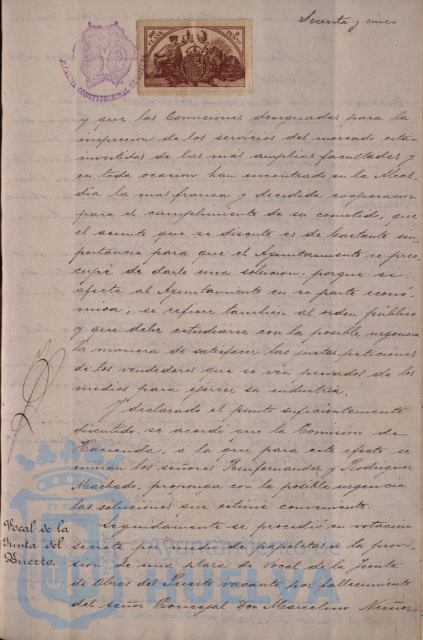 Sesenta y cinco
ALCALDIA CONSTITUCIONAL DE HUELVA
y que las Comisiones designadas para la
inspeccion de los servicios del mercado estan
investidas de las más amplias facultades y
en toda ocasion han encontrado en la Alcal-
día la más franca y decidida cooperacion
para el cumplimiento de su cometido; que
el asunto que se discute es de bastante im-
portancia para que el Ayuntamiento se preo-
cupe de darle una solucion, porque si
afecta al Ayuntamiento en su parte econó-
mica, se refiere tambien al orden público
y que debe estudiarse con la posible urgencia
la manera de satisfacer las justas peticiones
de los vendedores que se ven privados de los
medios para ejercer su industria.
Y declarado el punto suficientemente
discutido, se acordó que la Comision de
Hacienda, a la que para este efecto se
unirán los señores y Rodriguez
Machado, proponga con la posible urgencia
las soluciones que estime conveniente.
Vocal de la
Junta del
Puerto.
Seguidamente se procedió en votacion
secreta por medio de papeletas a la provi-
sion de una plaza de Vocal de la Junta
de Obras del Puerto vacante por fallecimiento
del señor Concejal Don Marcelino Nuñez
Ayuntamiento de
HUELVA